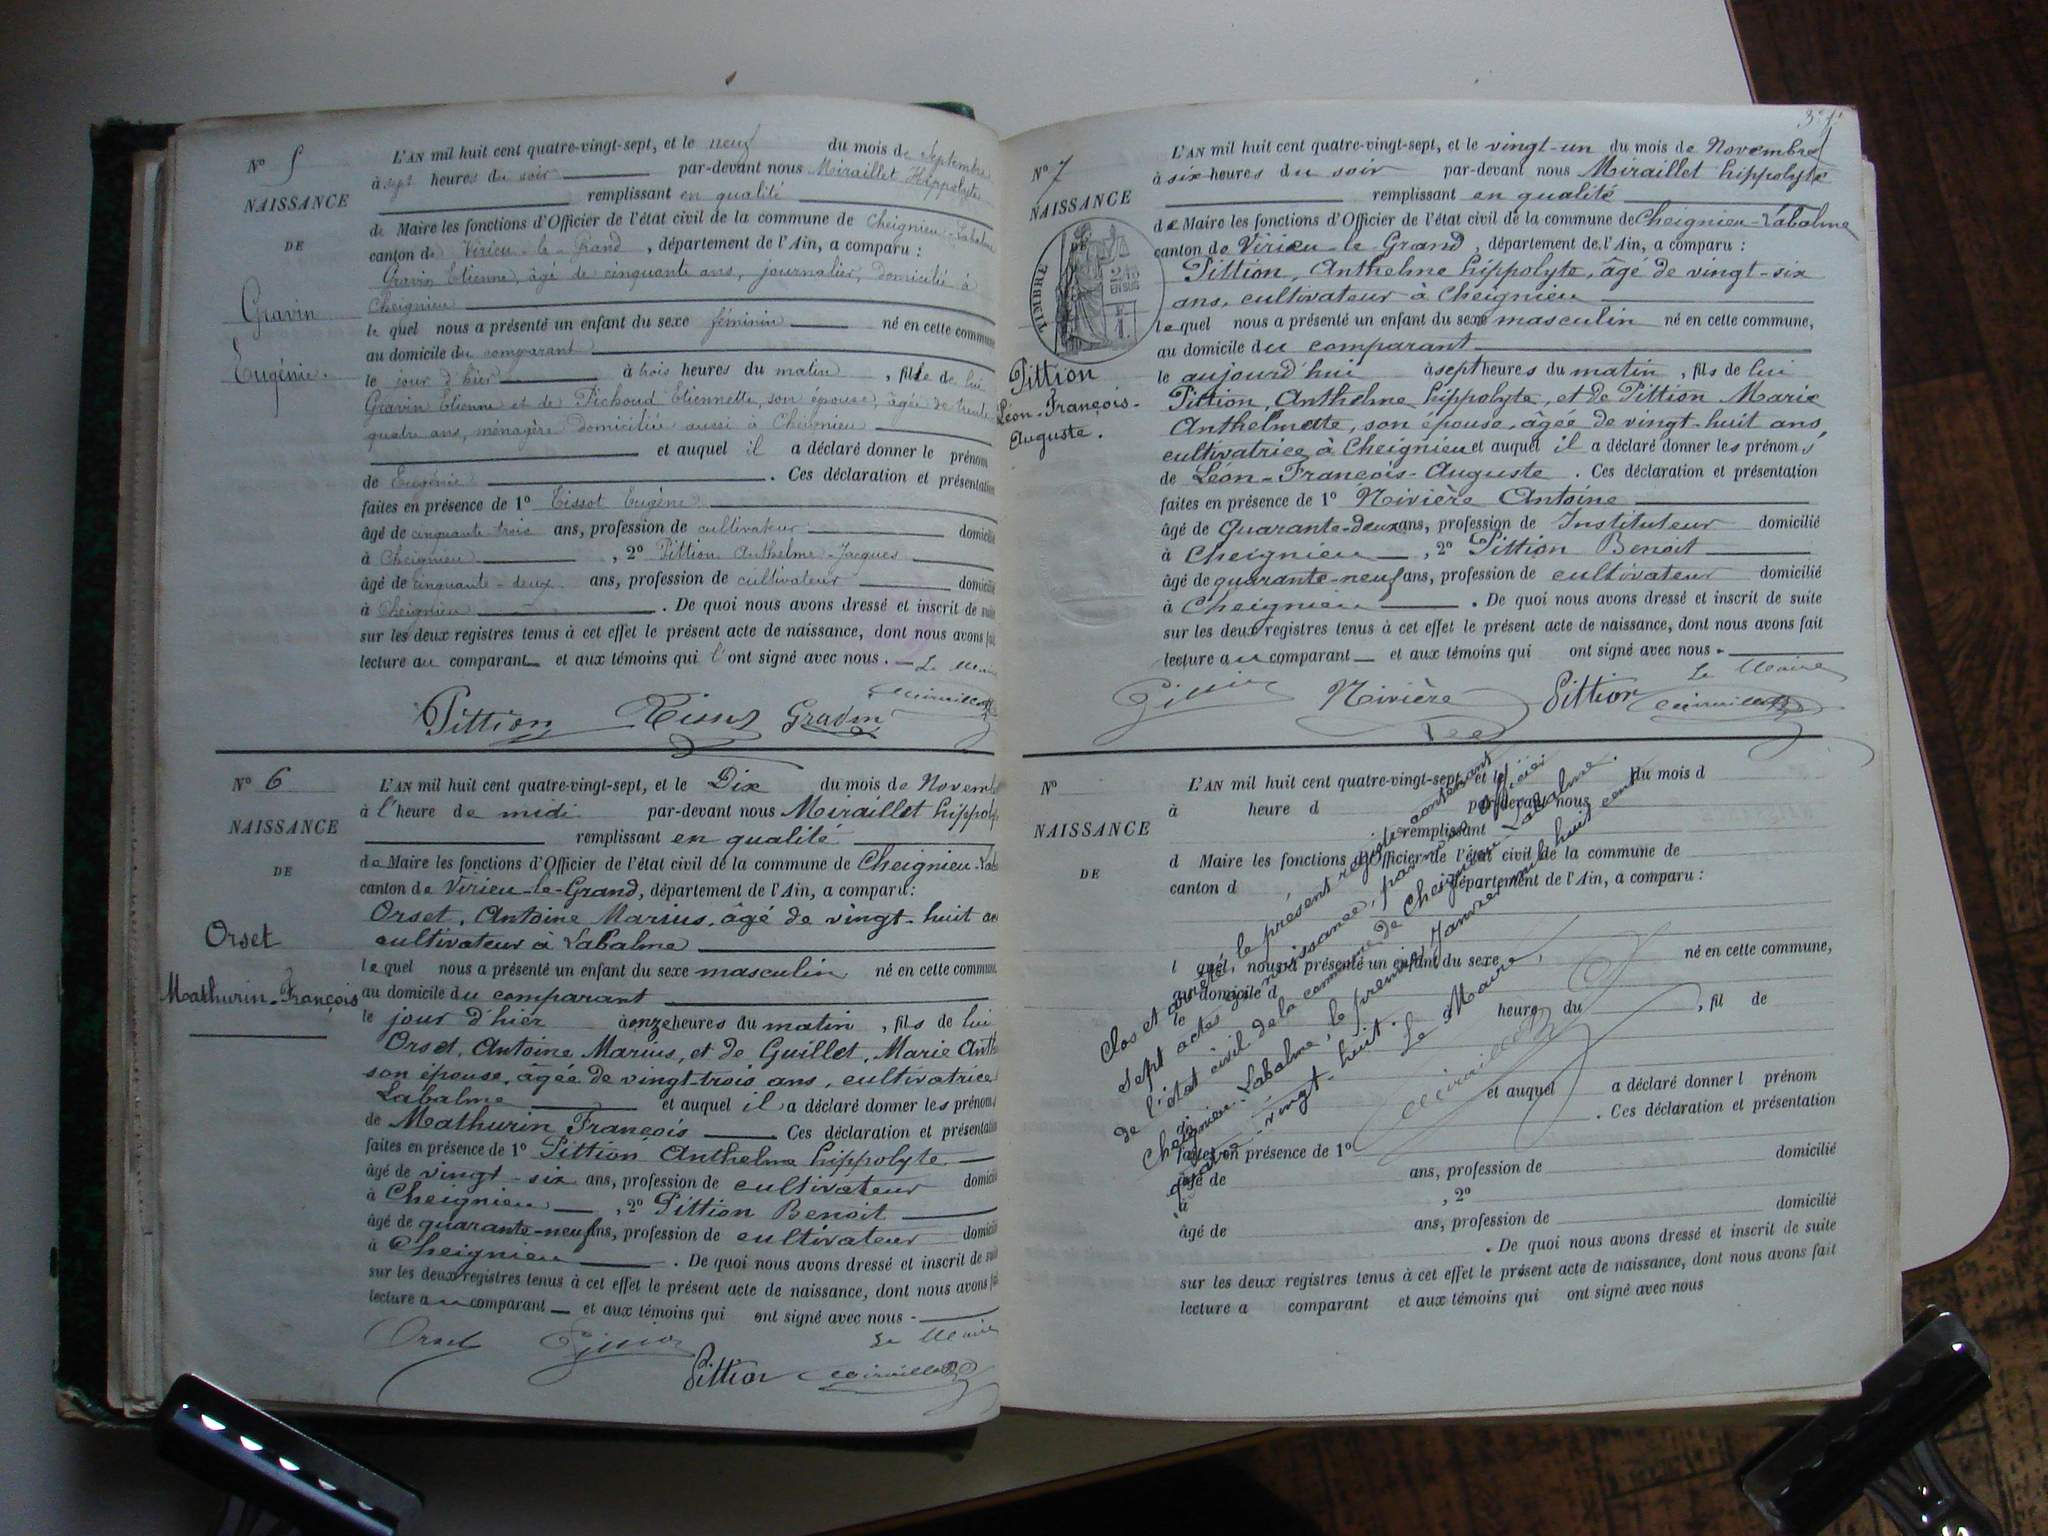 N° 5
NAISSANCE
DE
Gravin
Eugénie.
L'AN mil huit cent quatre-vingt-sept, et le neuf du mois de Septembre
à sept heures du soir par-devant nous Miraillet Hippolyte
remplissant en qualité
de Maire les fonctions d'Officier de l'état civil de la commune de Cheignieu-Labalme
canton de Virieu-le-Grand, département de l'Ain, a comparu :
Gravin Etienne, âgé de cinquante ans, journalier, domicilié à
Cheignieu
lequel nous a présenté un enfant du sexe féminin né en cette commune
au domicile du comparant
le jour d'hier à trois heures du matin, fille de lui
Gravin Etienne et de Pichoud Etiennette, son épouse, âgée de trente
quatre ans, ménagère domiciliée aussi à Cheignieu
et auquel il a déclaré donner le prénom
de Eugénie. Ces déclaration et présentation
faites en présence de 1° Tissot Eugène
âgé de cinquante trois ans, profession de cultivateur domicilié
à Cheignieu, 2° Pittion Anthelme-Jacques
âgé de cinquante-deux ans, profession de cultivateur domicilié
à Cheignieu. De quoi nous avons dressé et inscrit de suite
sur les deux registres tenus à cet effet le présent acte de naissance, dont nous avons fait
lecture au comparant et aux témoins qui l'ont signé avec nous. Le Maire
Pittion Gravin
N° 6
NAISSANCE
DE
Orset
Mathurin-François
L'AN mil huit cent quatre-vingt-sept, et le Dix du mois de Novemb
à l'heure de midi par-devant nous Miraillet hippoly
remplissant en qualité
de Maire les fonctions d'Officier de l'état civil de la commune de Cheignieu-Lab
canton de Virieu-le-Grand, département de l'Ain, a comparu :
Orset, Antoine Marius, âgé de vingt-huit an
cultivateur à Labalme
lequel nous a présenté un enfant du sexe masculin né en cette commune,
au domicile du comparant
le jour d'hier à onze heures du matin, fils de lui
Orset, Antoine Marius, et de Guillet, Marie Anth
son épouse, âgée de vingt-trois ans, cultivatrice
Labalme et auquel il a déclaré donner les prénoms
de Mathurin François Ces déclaration et présentation
faites en présence de 1° Pittion Anthelme hippolyte
âgé de vingt-six ans, profession de cultivateur domicilié
à Cheignieu, 2° Pittion Benoit
âgé de quarante-neuf ans, profession de cultivateur domicilié
à Cheignieu. De quoi nous avons dressé et inscrit de suite
sur les deux registres tenus à cet effet le présent acte de naissance, dont nous avons fait
lecture au comparant et aux témoins qui ont signé avec nous.
Le Maire
Orset Pittion
N° 7
NAISSANCE
DE
TIMBRE
2/10
EN SUS
Pittion
Léon-François-
Auguste.
L'AN mil huit cent quatre-vingt-sept, et le vingt-un du mois de Novembre
à six heures du soir par-devant nous Miraillet hippolyte
remplissant en qualité
de Maire les fonctions d'Officier de l'état civil de la commune de Cheignieu-Labalme
canton de Virieu-le-Grand, département de l'Ain, a comparu :
Pittion, Anthelme hippolyte, âgé de vingt-six
ans, cultivateur à Cheignieu
lequel nous a présenté un enfant du sexe masculin né en cette commune,
au domicile du comparant
le aujourd'hui à sept heures du matin, fils de lui
Pittion, Anthelme hippolyte, et de Pittion Marie
Anthelmette, son épouse, âgée de vingt-huit ans,
cultivatrice à Cheignieu et auquel il a déclaré donner les prénoms
de Léon-François-Auguste. Ces déclaration et présentation
faites en présence de 1° Rivière Antoine
âgé de Quarante-deux ans, profession de Instituteur domicilié
à Cheignieu, 2° Pittion Benoit
âgé de quarante-neuf ans, profession de cultivateur domicilié
à Cheignieu. De quoi nous avons dressé et inscrit de suite
sur les deux registres tenus à cet effet le présent acte de naissance, dont nous avons fait
lecture au comparant et aux témoins qui ont signé avec nous.
Le Maire
Rivière Pittion
N°
NAISSANCE
DE
L'AN mil huit cent quatre-vingt-sept, et le du mois d
à heure d par-devant nous
remplissant
d Maire les fonctions d'Officier de l'état civil de la commune de
canton d département de l'Ain, a comparu :
l quel nous a présenté un enfant du sexe né en cette commune,
au domicile d
le à heure du, fil de
et auquel a déclaré donner l prénom
de. Ces déclaration et présentation
faites en présence de 1°
âgé de ans, profession de domicilié
à, 2°
âgé de ans, profession de domicilié
à. De quoi nous avons dressé et inscrit de suite
sur les deux registres tenus à cet effet le présent acte de naissance, dont nous avons fait
lecture a comparant et aux témoins qui ont signé avec nous
Clos et arrêté, le présent registre contenant
sept actes de naissance, par nous officier
de l'état civil de la commune de Cheignieu-Labalme.
Cheignieu-Labalme, le premier Janvier mil huit cent
quatre-vingt-huit.
Le Maire,